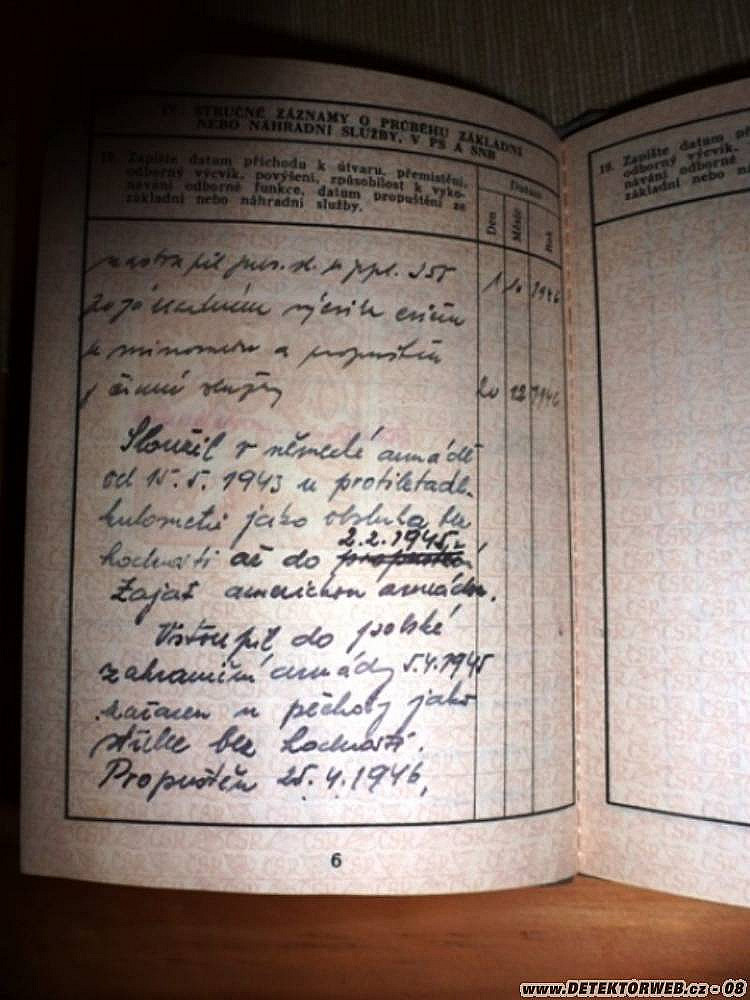 IV. STRUČNÉ ZÁZNAMY O PRŮBĚHU ZÁKLADNÍ
NEBO NÁHRADNÍ SLUŽBY, V PS A SNB
18. Zapište datum příchodu k útvaru, přemístění,
odborný výcvik, povýšení, způsobilost k vyko-
návání odborné funkce, datum propuštění ze
základní nebo náhradní služby.
Datum
Den
Měsíc
Rok
nastoupil pres. sl. u 1 10 1946
výcvik
u minometu a propuštěn
z činné služby 20 12 1946
Sloužil v německé armádě
od 15.5.1943 u protiletadl.
kulometů jako obsluha bez
2.2.1945,
hodnosti až do propuštění
Zajat americkou armádou.
Vstoupil do polské
zahraniční armády 5.4.1945
zařazen u pěchoty jako
střelec bez hodnosti.
Propuštěn 25.4.1946,
6
19. Zapište datum
odborný výcvik,
návání odborné
základní nebo
www.DETEKTORWEB.cz - 08